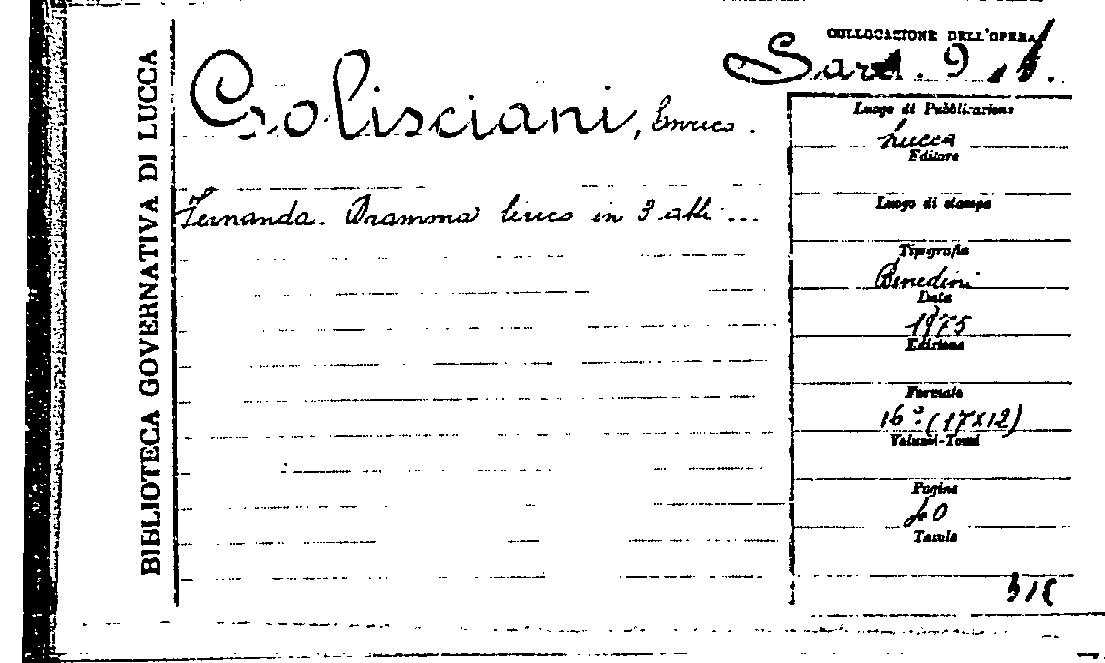 BIBLIOTECA GOVERNATIVA DI LUCCA
COLLOCAZIONE DELL'OPERA
Golisciani, Enrico.
Fernanda. Dramma lirico in 3 atti ...
Luogo di Pubblicazione
Lucca
Editore
Luogo di stampa
Tipografia
Benedini
Data
1975
Edizione
Formato
16° (17x12)
Volumi-Tomi
Pagine
40
Tavole